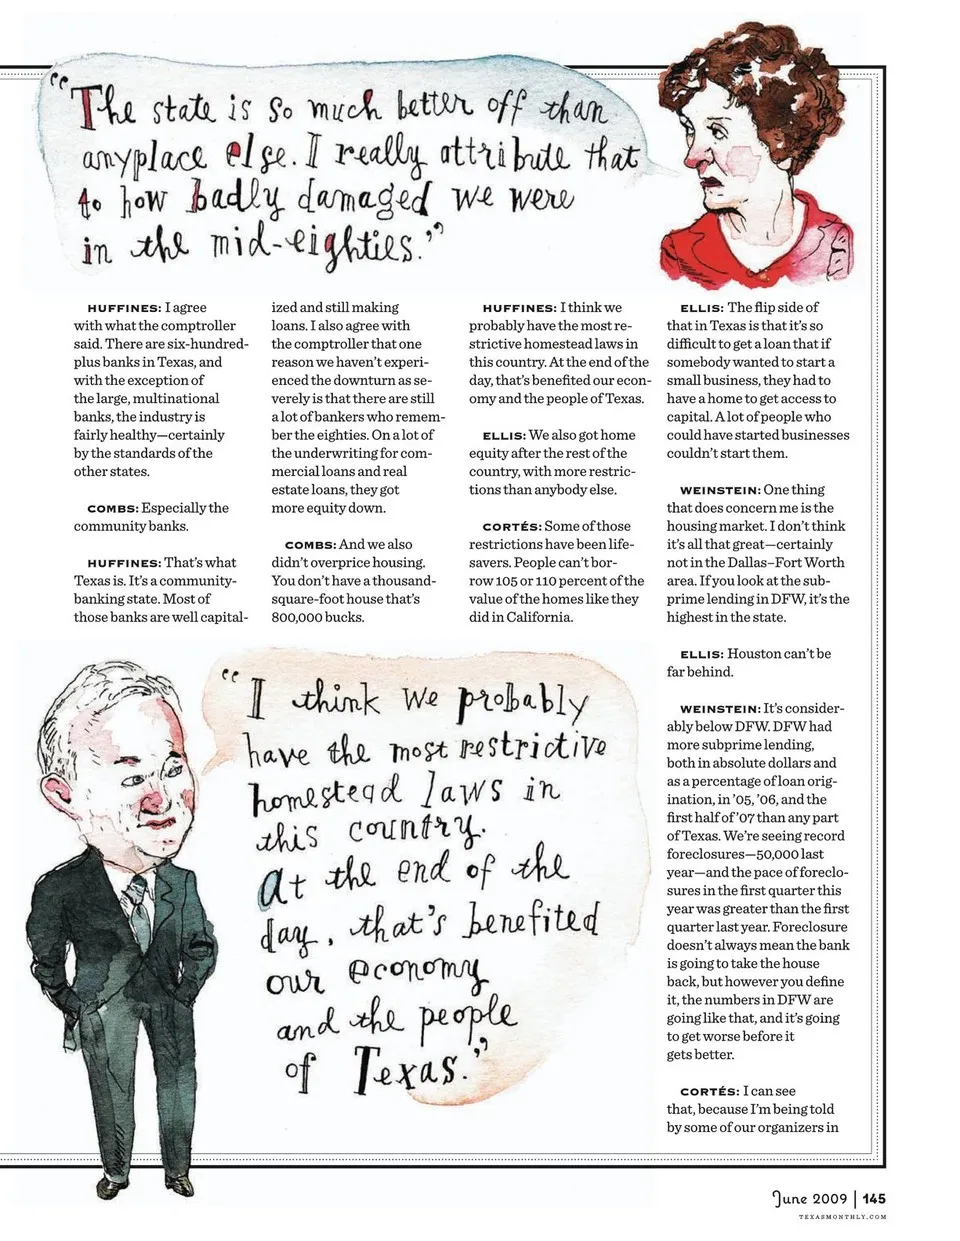 “The state is so much better off than
anyplace else. I really attribute that
to how badly damaged we were
in the mid-eighties.”
HUFFINES: I agree
with what the comptroller
said. There are six-hundred-
plus banks in Texas, and
with the exception of
the large, multinational
banks, the industry is
fairly healthy—certainly
by the standards of the
other states.
COMBS: Especially the
community banks.
HUFFINES: That’s what
Texas is. It’s a community-
banking state. Most of
those banks are well capital-
ized and still making
loans. I also agree with
the comptroller that one
reason we haven’t experi-
enced the downturn as se-
verely is that there are still
a lot of bankers who remem-
ber the eighties. On a lot of
the underwriting for com-
mercial loans and real
estate loans, they got
more equity down.
COMBS: And we also
didn’t overprice housing.
You don’t have a thousand-
square-foot house that’s
800,000 bucks.
HUFFINES: I think we
probably have the most re-
strictive homestead laws in
this country. At the end of the
day, that’s benefited our econ-
omy and the people of Texas.
ELLIS: We also got home
equity after the rest of the
country, with more restric-
tions than anybody else.
CORTÉS: Some of those
restrictions have been life-
savers. People can’t bor-
row 105 or 110 percent of the
value of the homes like they
did in California.
ELLIS: The flip side of
that in Texas is that it’s so
difficult to get a loan that if
somebody wanted to start a
small business, they had to
have a home to get access to
capital. A lot of people who
could have started businesses
couldn’t start them.
WEINSTEIN: One thing
that does concern me is the
housing market. I don’t think
it’s all that great—certainly
not in the Dallas–Fort Worth
area. If you look at the sub-
prime lending in DFW, it’s the
highest in the state.
ELLIS: Houston can’t be
far behind.
WEINSTEIN: It’s consider-
ably below DFW. DFW had
more subprime lending,
both in absolute dollars and
as a percentage of loan orig-
ination, in ’05, ’06, and the
first half of ’07 than any part
of Texas. We’re seeing record
foreclosures—50,000 last
year—and the pace of foreclo-
sures in the first quarter this
year was greater than the first
quarter last year. Foreclosure
doesn’t always mean the bank
is going to take the house
back, but however you define
it, the numbers in DFW are
going like that, and it’s going
to get worse before it
gets better.
CORTÉS: I can see
that, because I’m being told
by some of our organizers in
“I think we probably
have the most restrictive
homestead laws in
this country.
At the end of the
day, that’s benefited
our economy
and the people
of Texas.”
June 2009 | 145
TEXASMONTHLY.COM